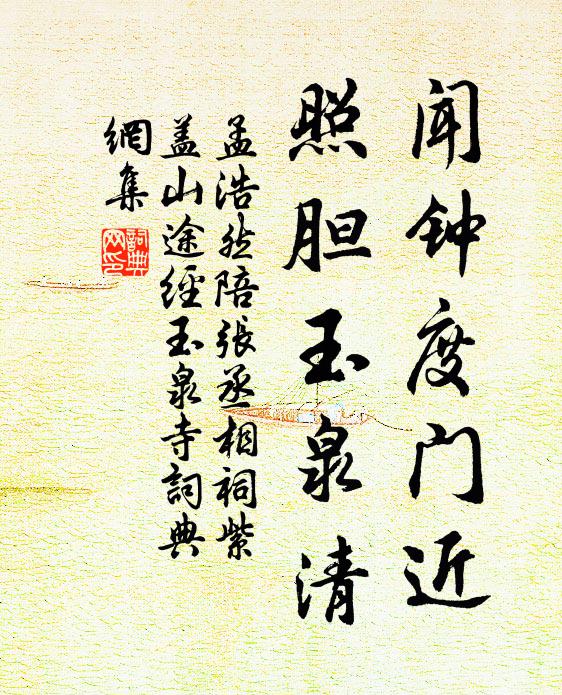 闻钟度门近
照胆玉泉清
孟浩然陪張丞相祠紫
盖山途經玉泉寺詞典
網集
詞典
网印